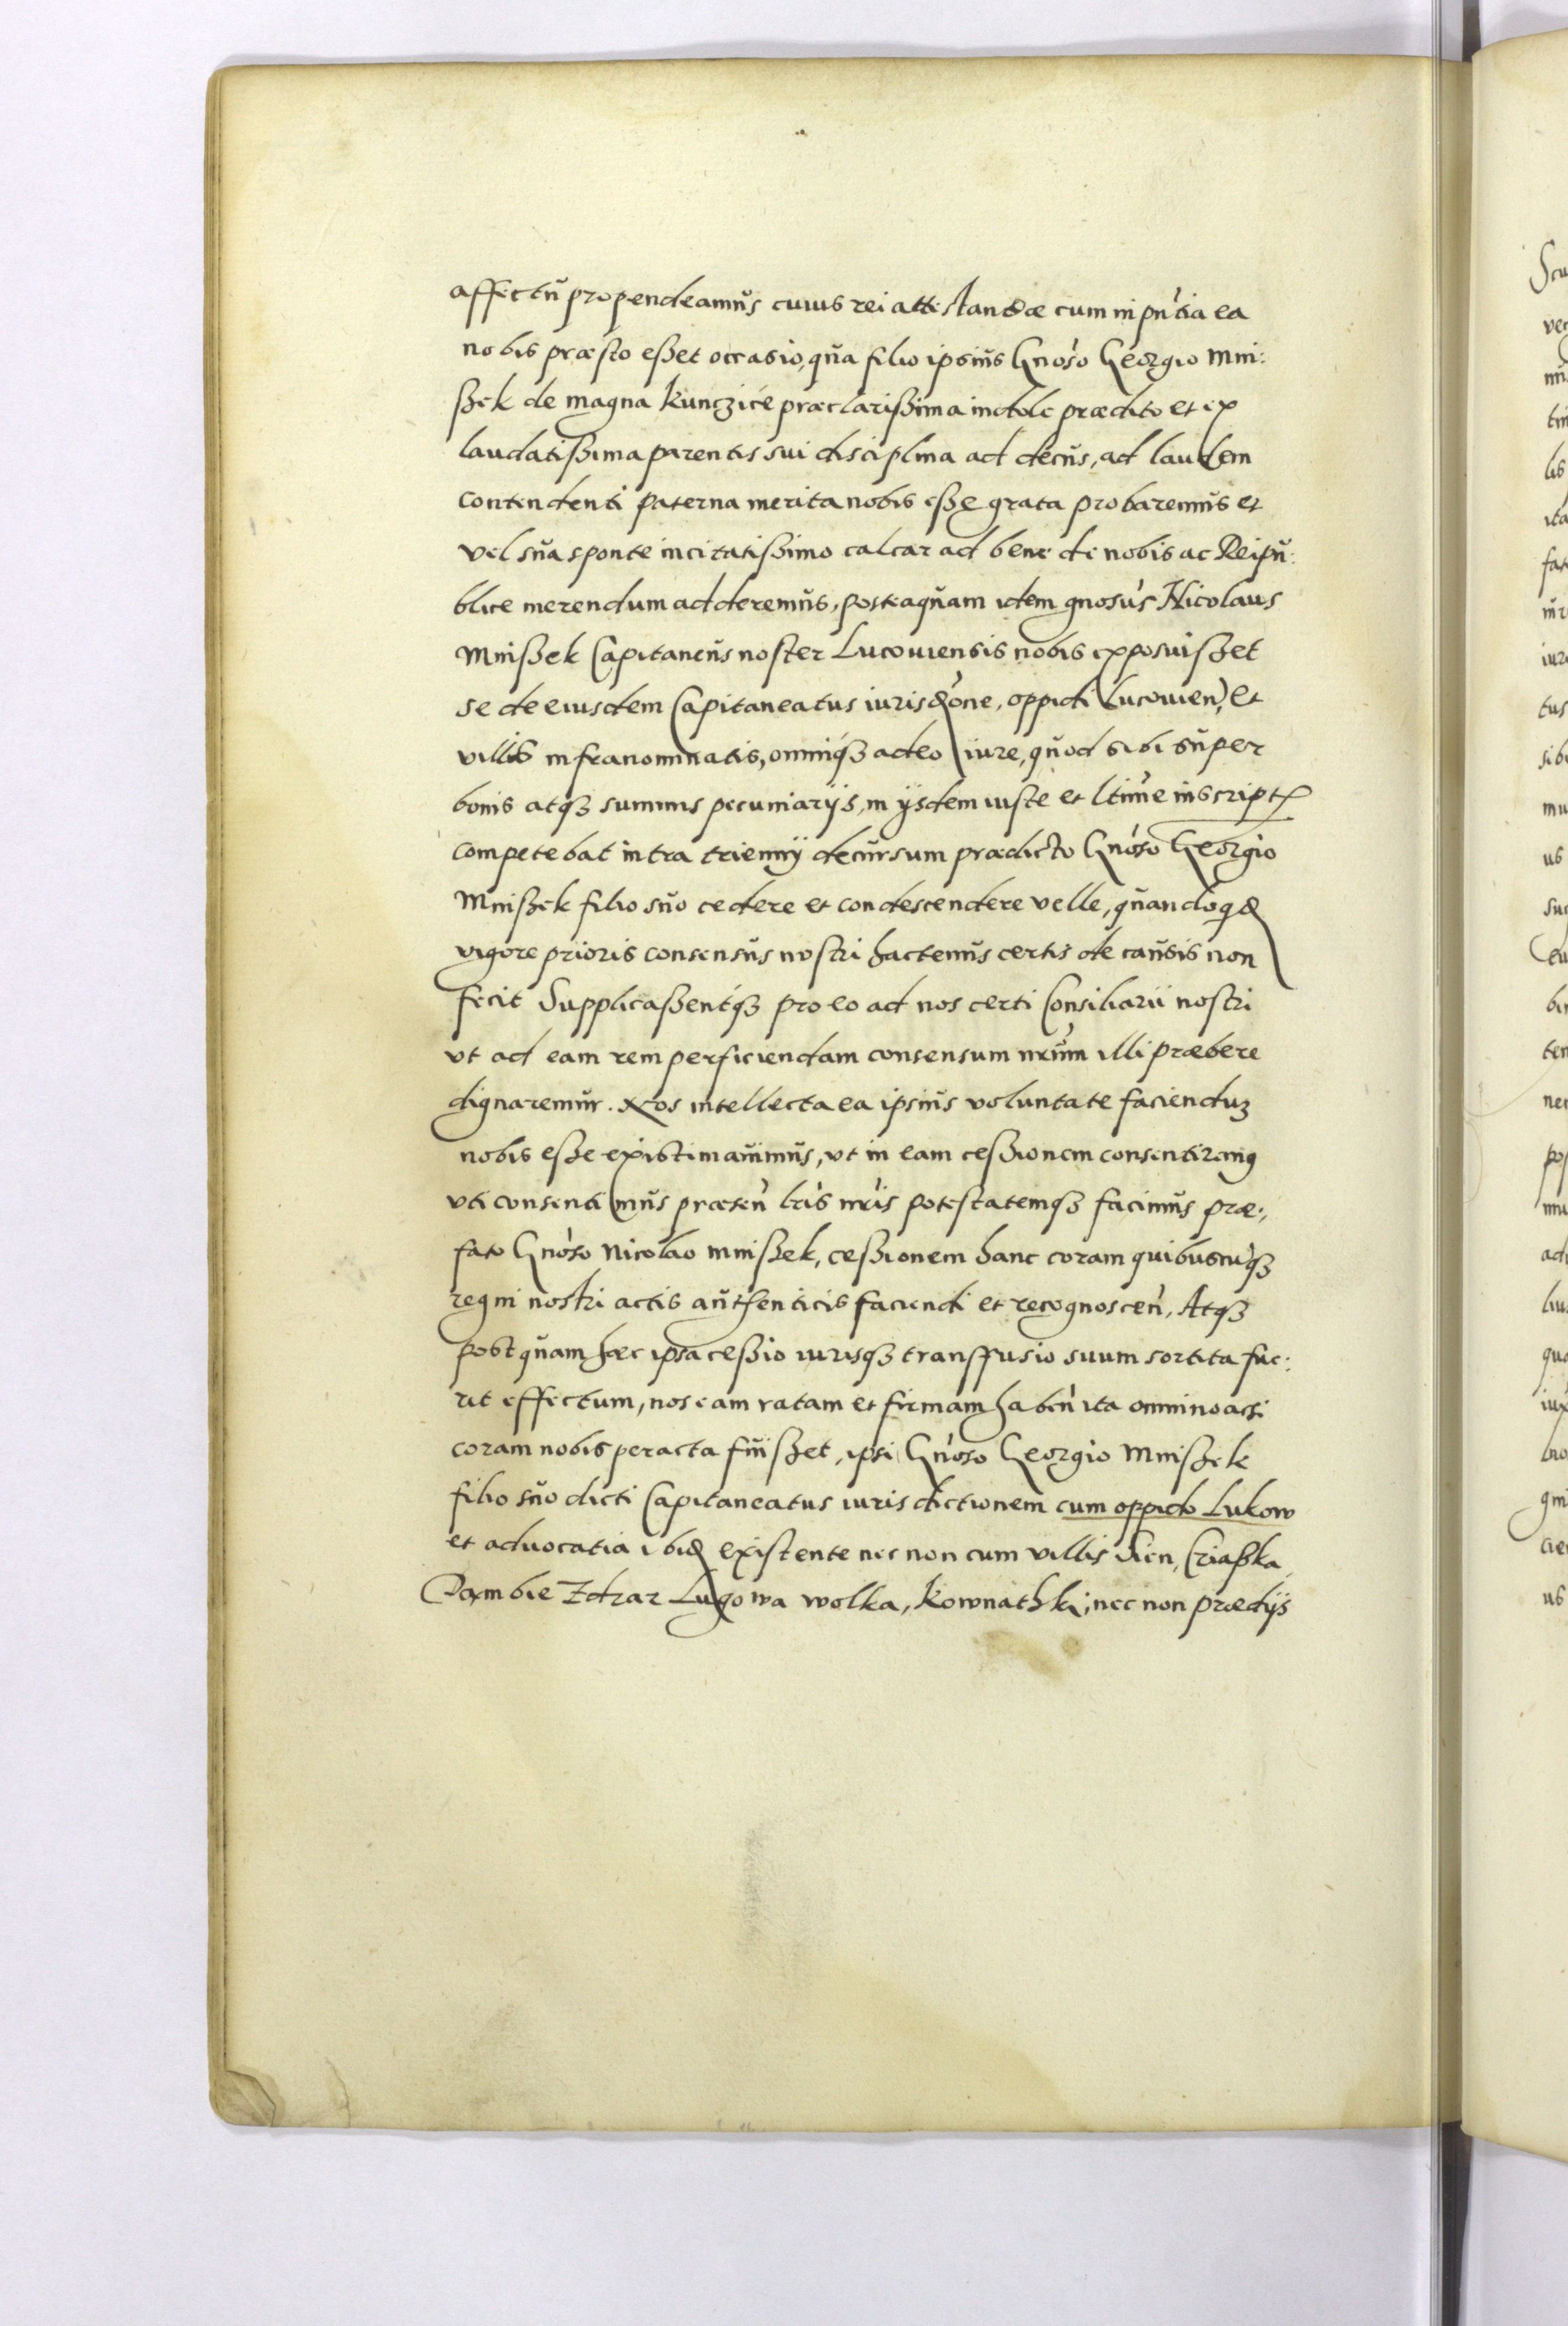 affectu propendeamus cuius rei attestandæ cum in pn̄tia ea
nobis præsto eßet occasio, qua filio ipsius Gnoso Georgio Mni:
ßek de magna Kunczice præclarißima indole prædito et ex
laudatißima parentis sui disciplina ad decus, ad laudem
contendenti paterna merita nobis eße grata probaremus et
vel sua sponte incitatißimo calcar ad bene de nobis ac Reipu:
blice merendum adderemus, posteaquam idem gnosus Nicolaus
Mnißek Capitaneus noster Lucouiensis nobis exposuißet
se de eiusdem Capitaneatus iurisdōne, oppidi Lucouien, et
villis infranominatis, omniq3 adeo iure, quod sibi super
bonis atq3 summis pecuniarijs, in ijsdem iuste et ltime inscript
competebat intra triennij decursum prædicto Gnoso Georgio
Mnißek filio suo cedere et condescendere velle, quandoqd
vigore prioris consensus nostri hactenus certis de causis non
fecit Supplicaßentq3 pro eo ad nos certi Consiliarii nostri
vt ad eam rem perficiendam consensum nrum illi præbere
dignaremur. Nos intellecta ea ipsius voluntate faciendu3
nobis eße existimauimus, vt in eam ceßionem consentiremus
vti consentimus præsen lris nris potestatemq3 facimus præ:
fato Gnoso Nicolao Mnißek, ceßionem hanc coram quibuscuq3
regni nostri actis authenticis faciendi et recognoscen, Atq3
postquam hæc ipsa ceßio iurisq3 transfusio suum sortita fue:
rit effectum, nos eam ratam et firmam haben ita omnino acsi
coram nobis peracta fuißet, ipsi Gnoso Georgio Mnißek
filio suo dicti Capitaneatus iurisdictionem cum oppido Lukow
et aduocatia ibid existente nec non cum villis Sien, Criaßka,
Dambie Zdzar Lugowa wolka, Kownathki, nec non prædijs